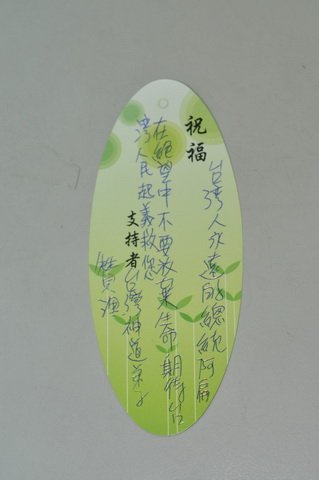 祝福
台灣人永遠的總統阿扁
在絕望中不要放棄生命期待台
灣人民起義救您
支持者
台灣神道弟子